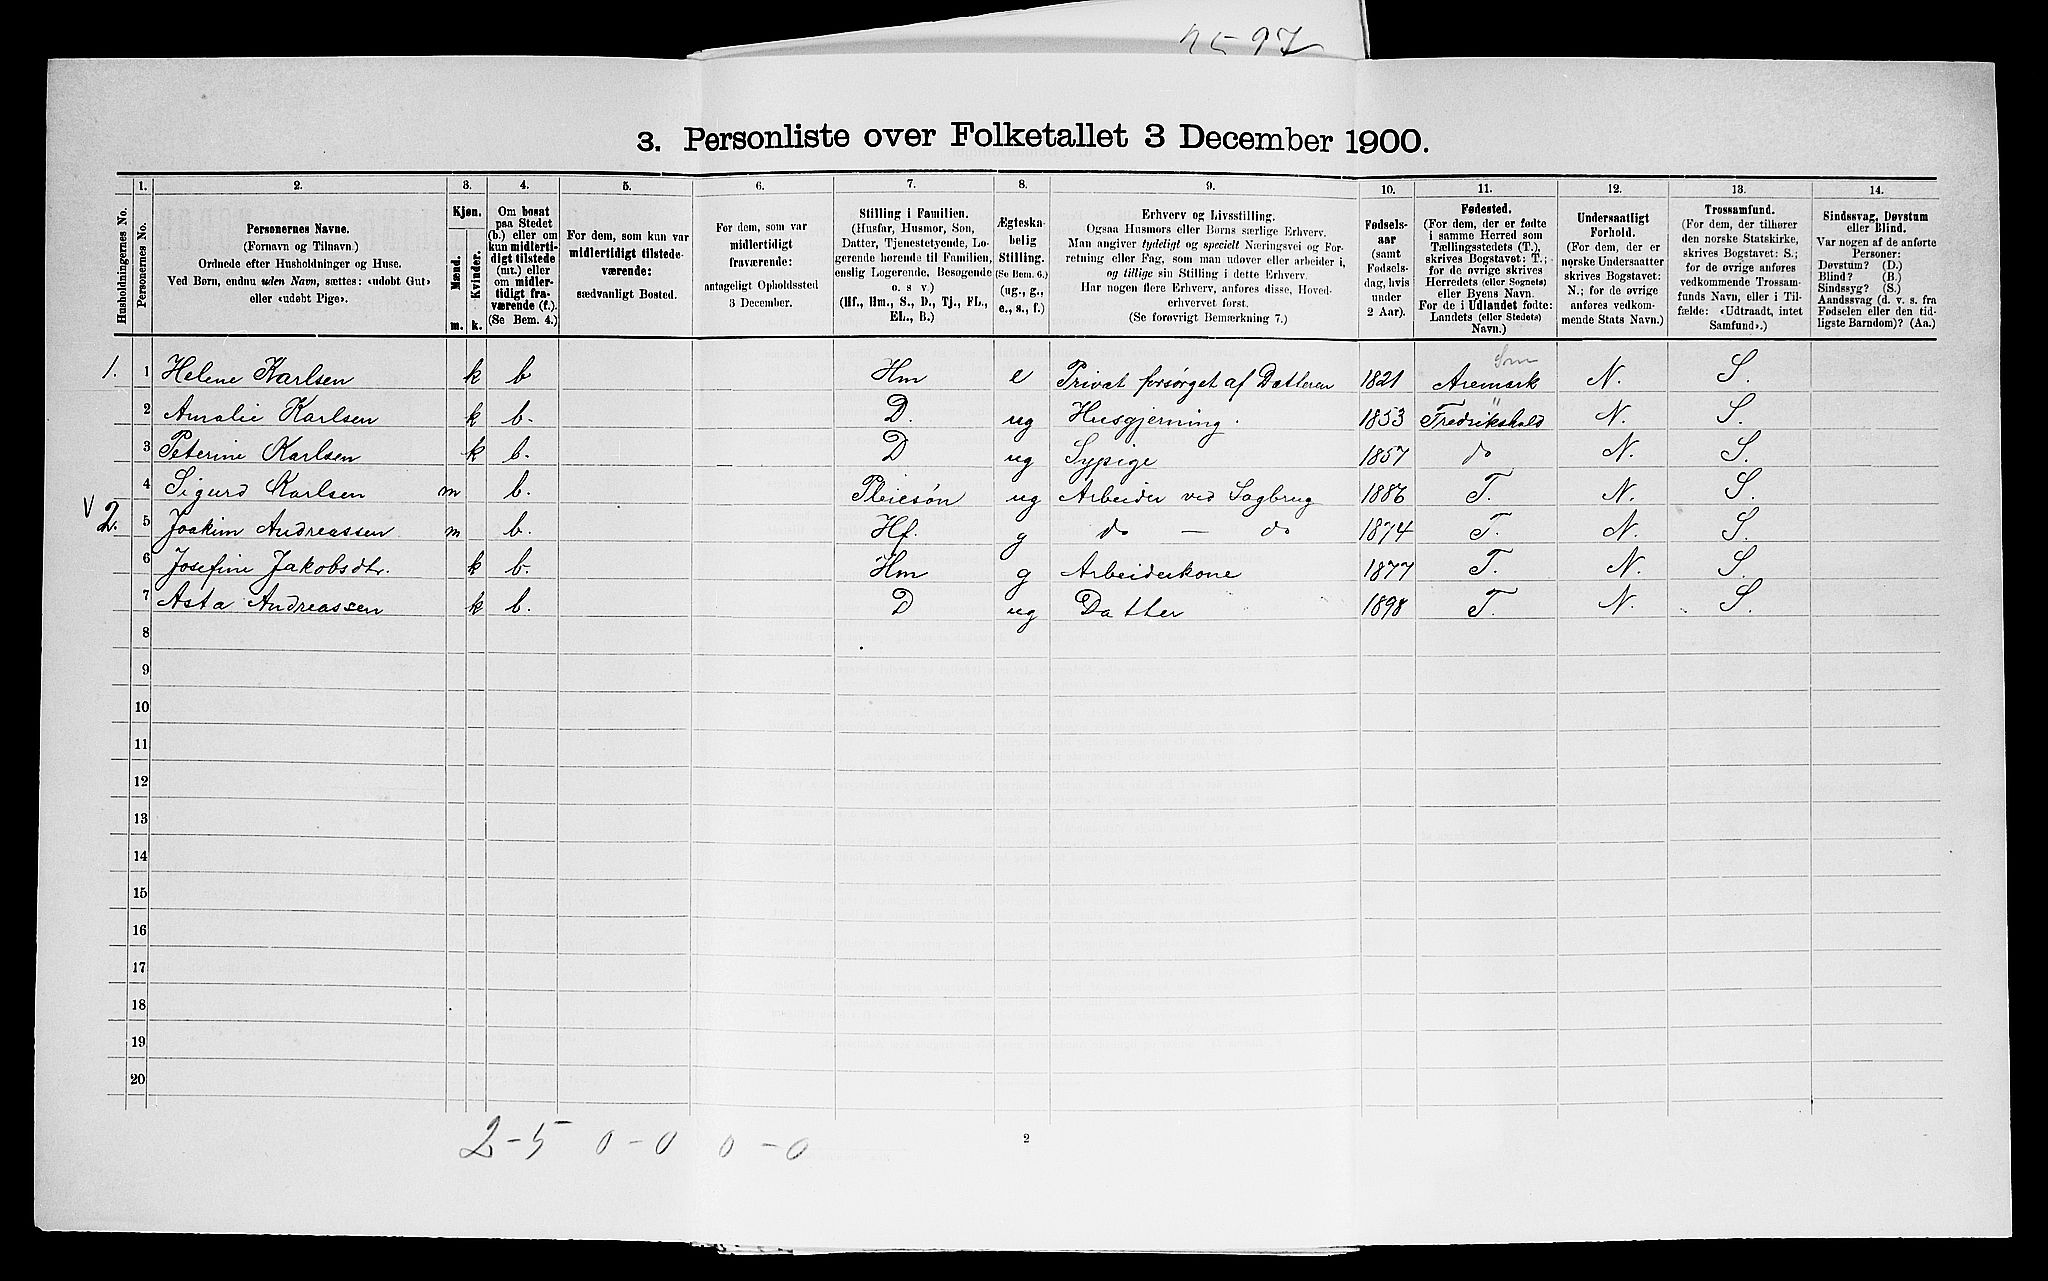 2597
3. Personliste over Folketallet 3 December 1900.
Husholdningernes No.
1. Personernes No.
2. Personernes Navne.
(Fornavn og Tilnavn.)
Ordnede efter Husholdninger og Huse.
Ved Børn, endnu uden Navn, sættes: «udøbt Gut»
eller «udøbt Pige».
3. Kjøn.
Mænd. Kvinder.
m. k.
4. Om bosat
paa Stedet
(b.) eller om
kun midlerti-
digt tilstede
(mt.) eller
om midler-
tidigt fra-
værende (f.).
(Se Bem. 4.)
5. For dem, som kun var
midlertidigt tilstede-
værende:
sædvanligt Bosted.
6. For dem, som var
midlertidigt
fraværende:
antageligt Opholdssted
3 December.
7. Stilling i Familien.
(Husfar, Husmor, Søn,
Datter, Tjenestetyende, Lo-
gerende hørende til Familien,
enslig Logerende, Besøgende
o. s v.)
(Hf., Hm., S., D., Tj., FL.,
EL., B.)
8. Ægteska-
belig
Stilling.
(Se Bem. 6.)
(ug., g.,
e., s., f.)
9. Erhverv og Livsstilling.
Ogsaa Husmors eller Børns særlige Erhverv.
Man angiver tydeligt og specielt Næringsvei og For-
retning eller Fag, som man udøver eller arbeider i,
og tillige sin Stilling i dette Erhverv.
Har nogen flere Erhverv, anføres disse, Hoved-
erhvervet først.
(Se forøvrigt Bemærkning 7.)
10. Fødsels-
aar
(samt
Fødsels-
dag, hvis
under
2 Aar).
11. Fødested.
(For dem, der er fødte
i samme Herred som
Tællingsstedets (T.),
skrives Bogstavet: T.;
for de øvrige skrives
Herredets (eller Sognets)
eller Byens Navn.
For de i Udlandet fødte:
Landets (eller Stedets)
Navn.)
12. Undersaatligt
Forhold.
(For dem, der er
norske Undersaatter
skrives Bogstavet:
N.; for de øvrige
anføres vedkom-
mende Stats Navn.)
13. Trossamfund.
(For dem, der tilhører
den norske Statskirke,
skrives Bogstavet: S.;
for de øvrige anføres
vedkommende Trossam-
funds Navn, eller i Til-
fælde: «Udtraadt, intet
Samfund».)
14. Sindssvag, Døvstum
eller Blind.
Var nogen af de anførte
Personer:
Døvstum? (D.)
Blind? (B.)
Sindssyg? (S.)
Aandssvag (d. v. s. fra
Fødselen eller den tid-
ligste Barndom)? (Aa.)
1. 1 Helene Karlsen k b Hm e Privat forsørget af Datteren 1821 Aremark N. S.
2 Amalie Karlsen k b. D. ug Husgjerning. 1853 Fredrikshald N. S.
3 Peterine Karlsen k b. D ug Sypige 1857 do N. S.
4 Sigurd Karlsen m b. Pleiesøn ug Arbeider ved Sagbrug 1886 T. N. S.
V 2. 5 Joakim Andreassen m b. Hf. g do — do 1874 T. N. S.
6 Josefine Jakobsdtr. k b. Hm g Arbeiderkone 1877 T. N. S.
7 Asta Andreassen k b. D ug Datter 1898 T. N. S.
8
9
10
11
12
13
14
15
16
17
18
19
20
2-5 0-0 0-0
2